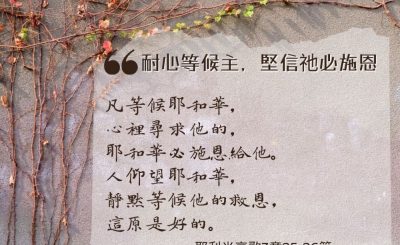 ❝耐心等候主，堅信祂必施恩
凡等候耶和華，
心裡尋求他的，
耶和華必施恩給他。
人仰望耶和華，
靜默等候他的救恩，
這原是好的。